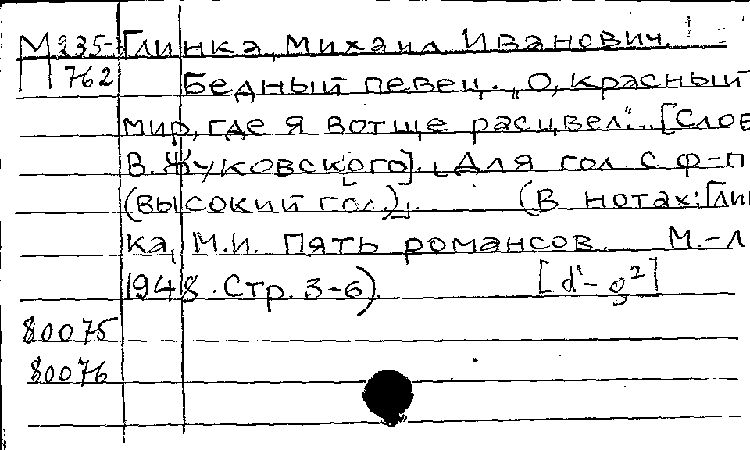 М235- Глинка, Михаил Иванович.
П762 Бедный певец. „О, красный
мир, где я вотще расцвел". [Слов
В. Жуковского]. [Для гол с ф-п
(высокий гол.)]. (В нотах: Глин
ка, М.И. Пять романсов. М.-Л
1948. Стр. 3-6). [d¹-g²]
80075
80076